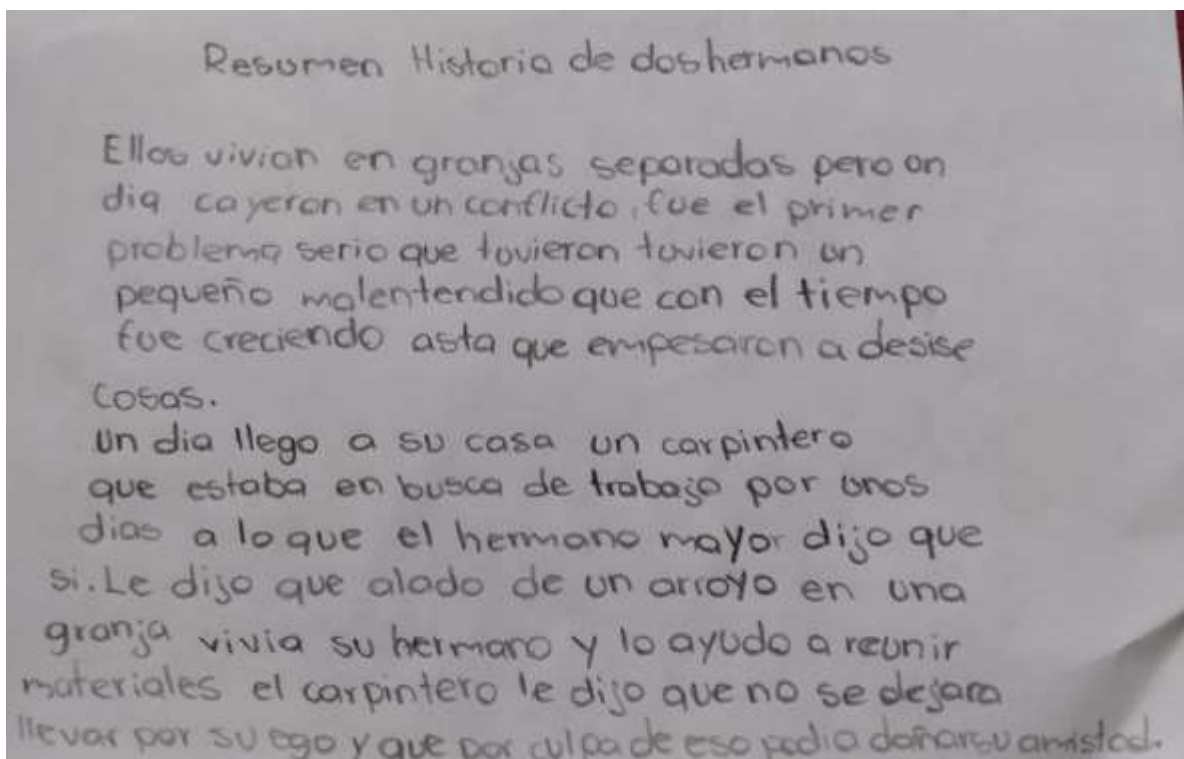 Resumen Historia de dos hermanos
Ellos vivian en granjas separadas pero un
dia cayeron en un conflicto, fue el primer
problema serio que tuvieron tuvieron un
pequeño malentendido que con el tiempo
fue creciendo asta que empesaron a desise
cosas.
un dia llego a su casa un carpintero
que estaba en busca de trabajo por unos
dias a lo que el hermano mayor dijo que
si. Le dijo que alado de un arroyo en una
granja vivia su hermano y lo ayudo a reunir
materiales el carpintero le dijo que no se dejara
llevar por su ego y que por culpa de eso podia dañar su amistad.